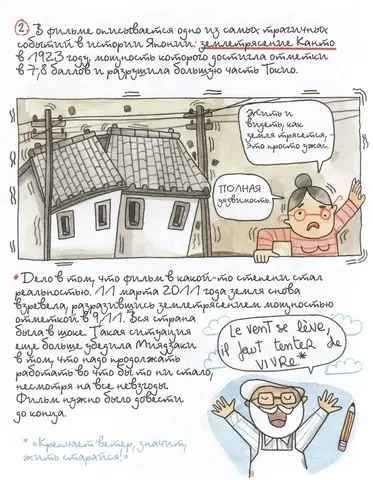 2. В фильме описывается одно из самых трагичных
событий в истории Японии: землетрясение Канто
в 1923 году, мощность которого достигла отметки
в 7,8 баллов и разрушила большую часть Токио.
Жить и
видеть, как
земля трясется,
это просто ужас.
ПОЛНАЯ
уязвимость.
* Дело в том, что фильм в какой-то степени стал
реальностью. 11 марта 2011 года земля снова
взревела, разразившись землетрясением мощностью
отметкой в 9,11. Вся страна
была в шоке. Такая ситуация
еще больше убедила Миядзаки
в том, что надо продолжать
работать во что бы то ни стало,
несмотря на все невзгоды.
Фильм нужно было довести
до конца.
Le vent se lève,
il faut tenter de
vivre.*
* «Крепчает ветер, значит,
жить старайся!»